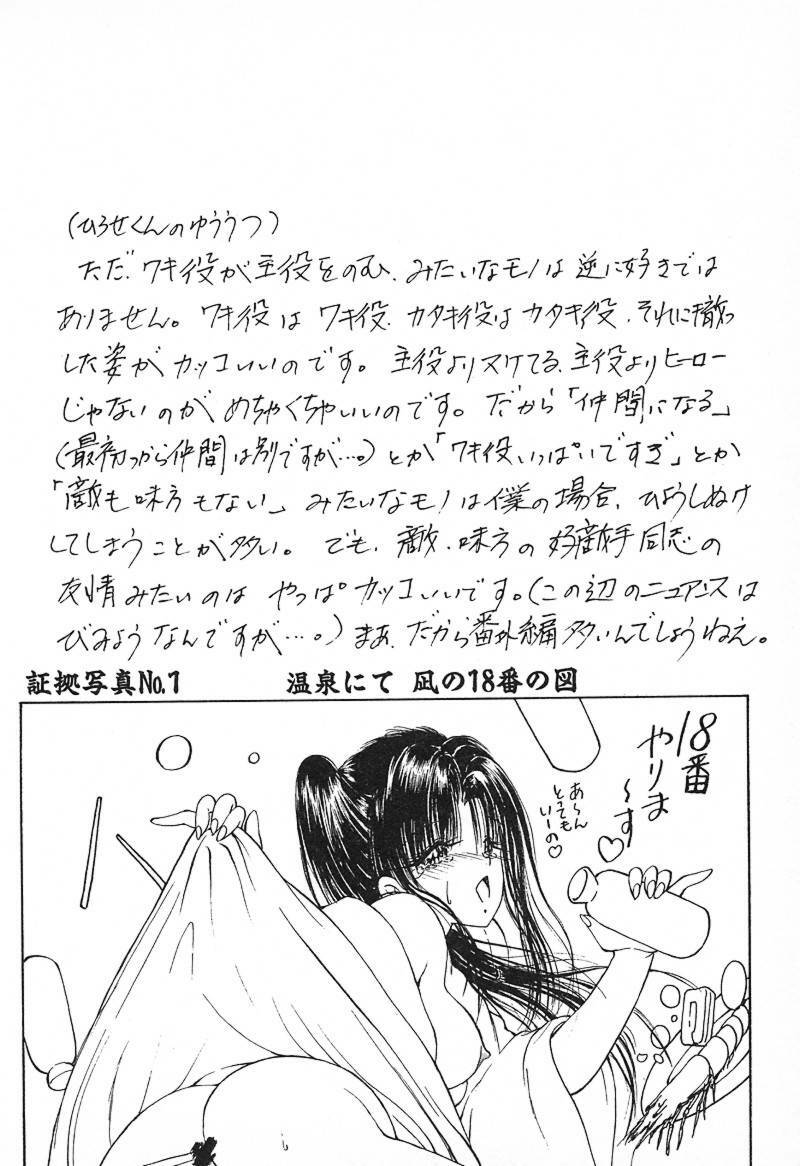 (ひろせくんのゆううつ)
ただ、ワキ役が主役をのむ、みたいなモノは逆に好きでは
ありません。ワキ役はワキ役、カタキ役はカタキ役、それに徹っ
した姿がカッコいいのです。主役よりヌケてる、主役よりヒーロー
じゃないのがめちゃくちゃいいのです。だから「仲間になる」
(最初っから仲間は別ですが…。)とか「ワキ役いっぱいですぎ」とか
「敵も味方もない」みたいなモノは僕の場合、ひょうしぬけ
してしまうことが多い。でも、敵、味方の好敵手同志の
友情みたいのはやっぱカッコいいです。(この辺のニュアンスは
びみょうなんですが…。)まあ、だから番外編多いんでしょうねえ。
証拠写真No.1 温泉にて 凪の18番の図
18番
やりま
〜す♡
あ〜ん
とっても
いーの♡